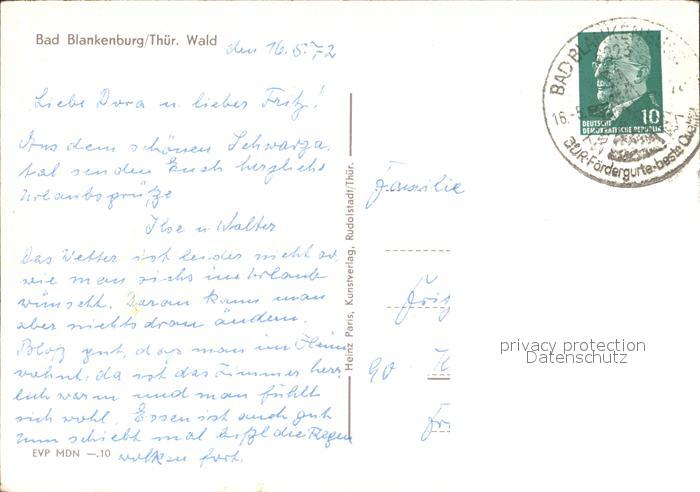 Bad Blankenburg/Thür. Wald
den 16.5.72
Liebe Dora u. lieber Fritz!
Aus dem schönen Schwarza
tal senden Euch herzliche
Urlaubsgrüße
Ilse u. Walter
Das Wetter ist leider nicht so,
wie man sichs im Urlaub
wünscht. Daran kann man
aber nichts dran ändern.
Bloß gut, das man im Heim
wohnt, da ist das Zimmer herr
lich warm und man fühlt
sich wohl. Essen ist auch gut
nun schiebt mal bißl die Regen
wolken fort.
EVP MDN —.10
Heinz Paris, Kunstverlag, Rudolstadt/Thür.
Familie
Fritz
90
BAD BLANKENBURG
16.-5.
ZUR-Fördergurte-beste
10
DEUTSCHE
DEMOKRATISCHE REPUBLIK
privacy protection
Datenschutz